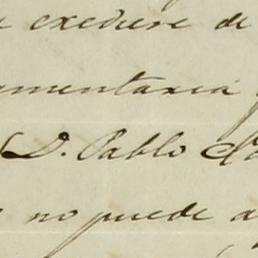 excediere de
mentaria
D. Pablo
no puede a